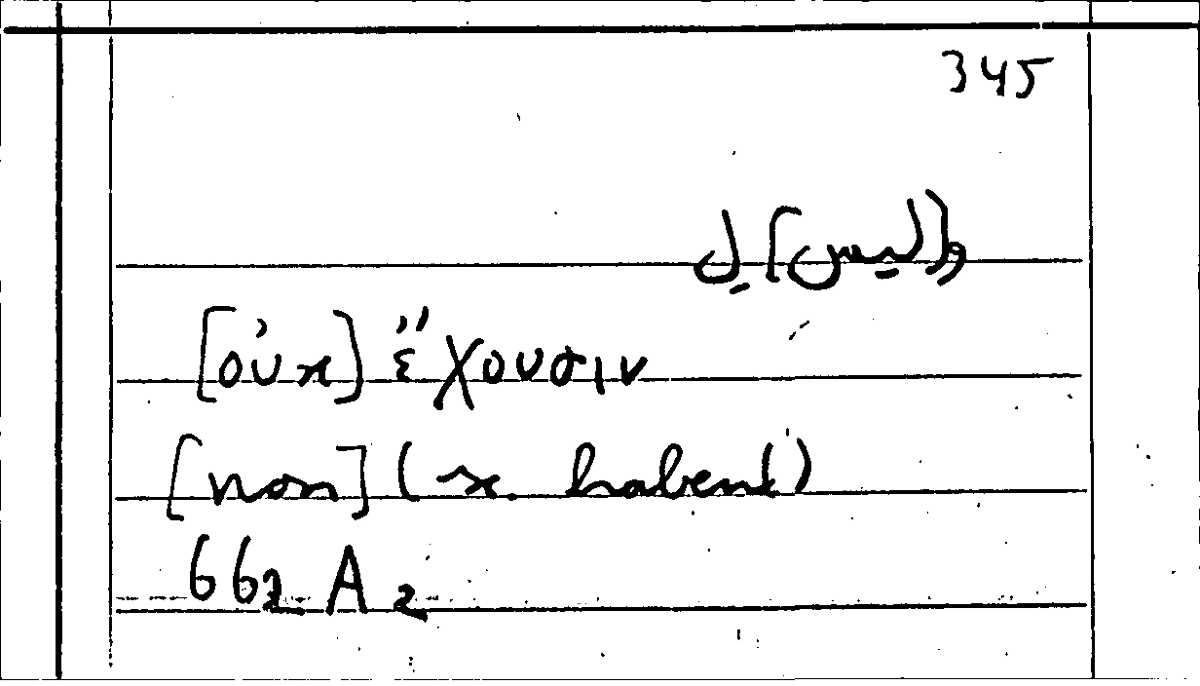 345
و[ليس] ل
[οὐκ] ἔχουσιν
[non] (x. habent)
662 A 2